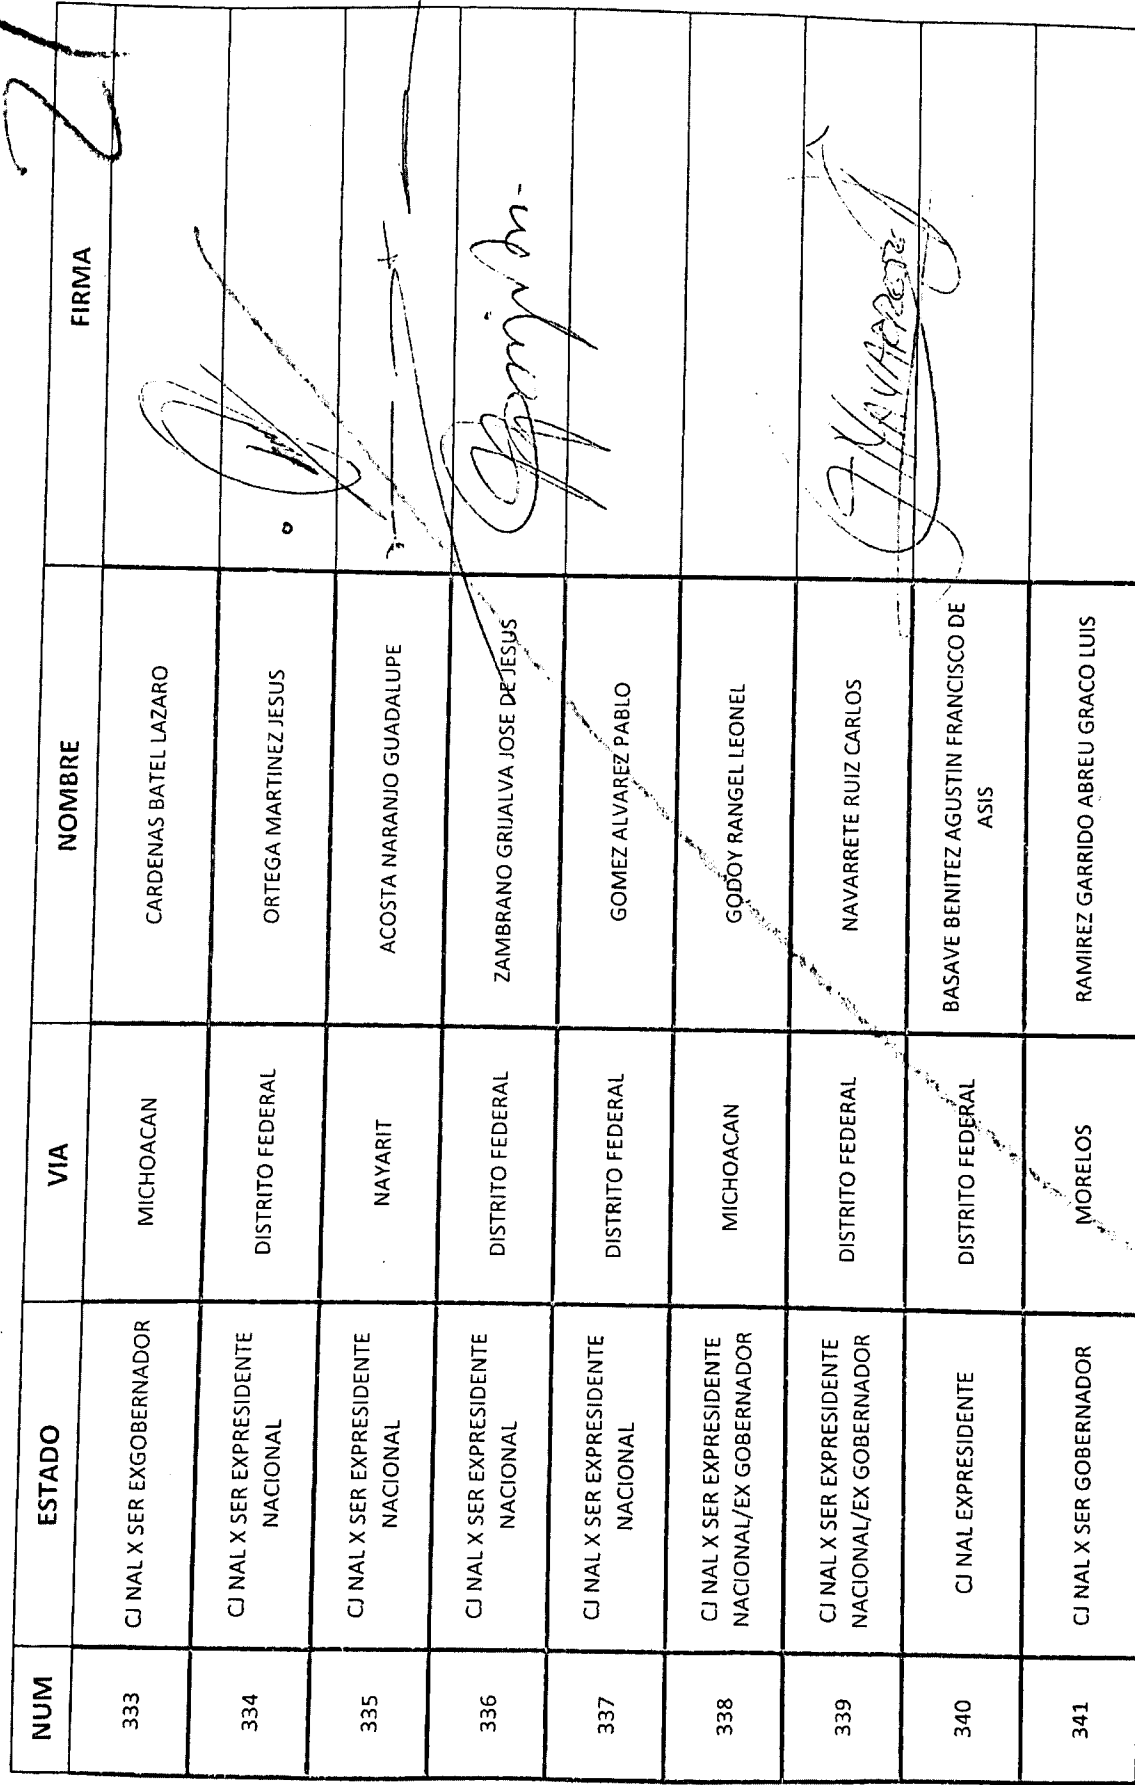 NUM ESTADO VIA NOMBRE FIRMA
333 CJ NAL X SER EXGOBERNADOR MICHOACAN CARDENAS BATEL LAZARO
334 CJ NAL X SER EXPRESIDENTE NACIONAL DISTRITO FEDERAL ORTEGA MARTINEZ JESUS
335 CJ NAL X SER EXPRESIDENTE NACIONAL NAYARIT ACOSTA NARANJO GUADALUPE
336 CJ NAL X SER EXPRESIDENTE NACIONAL DISTRITO FEDERAL ZAMBRANO GRIJALVA JOSE DE JESUS
337 CJ NAL X SER EXPRESIDENTE NACIONAL DISTRITO FEDERAL GOMEZ ALVAREZ PABLO
338 CJ NAL X SER EXPRESIDENTE NACIONAL/EX GOBERNADOR MICHOACAN GODOY RANGEL LEONEL
339 CJ NAL X SER EXPRESIDENTE NACIONAL/EX GOBERNADOR DISTRITO FEDERAL NAVARRETE RUIZ CARLOS
340 CJ NAL EXPRESIDENTE DISTRITO FEDERAL BASAVE BENITEZ AGUSTIN FRANCISCO DE ASIS
341 CJ NAL X SER GOBERNADOR MORELOS RAMIREZ GARRIDO ABREU GRACO LUIS